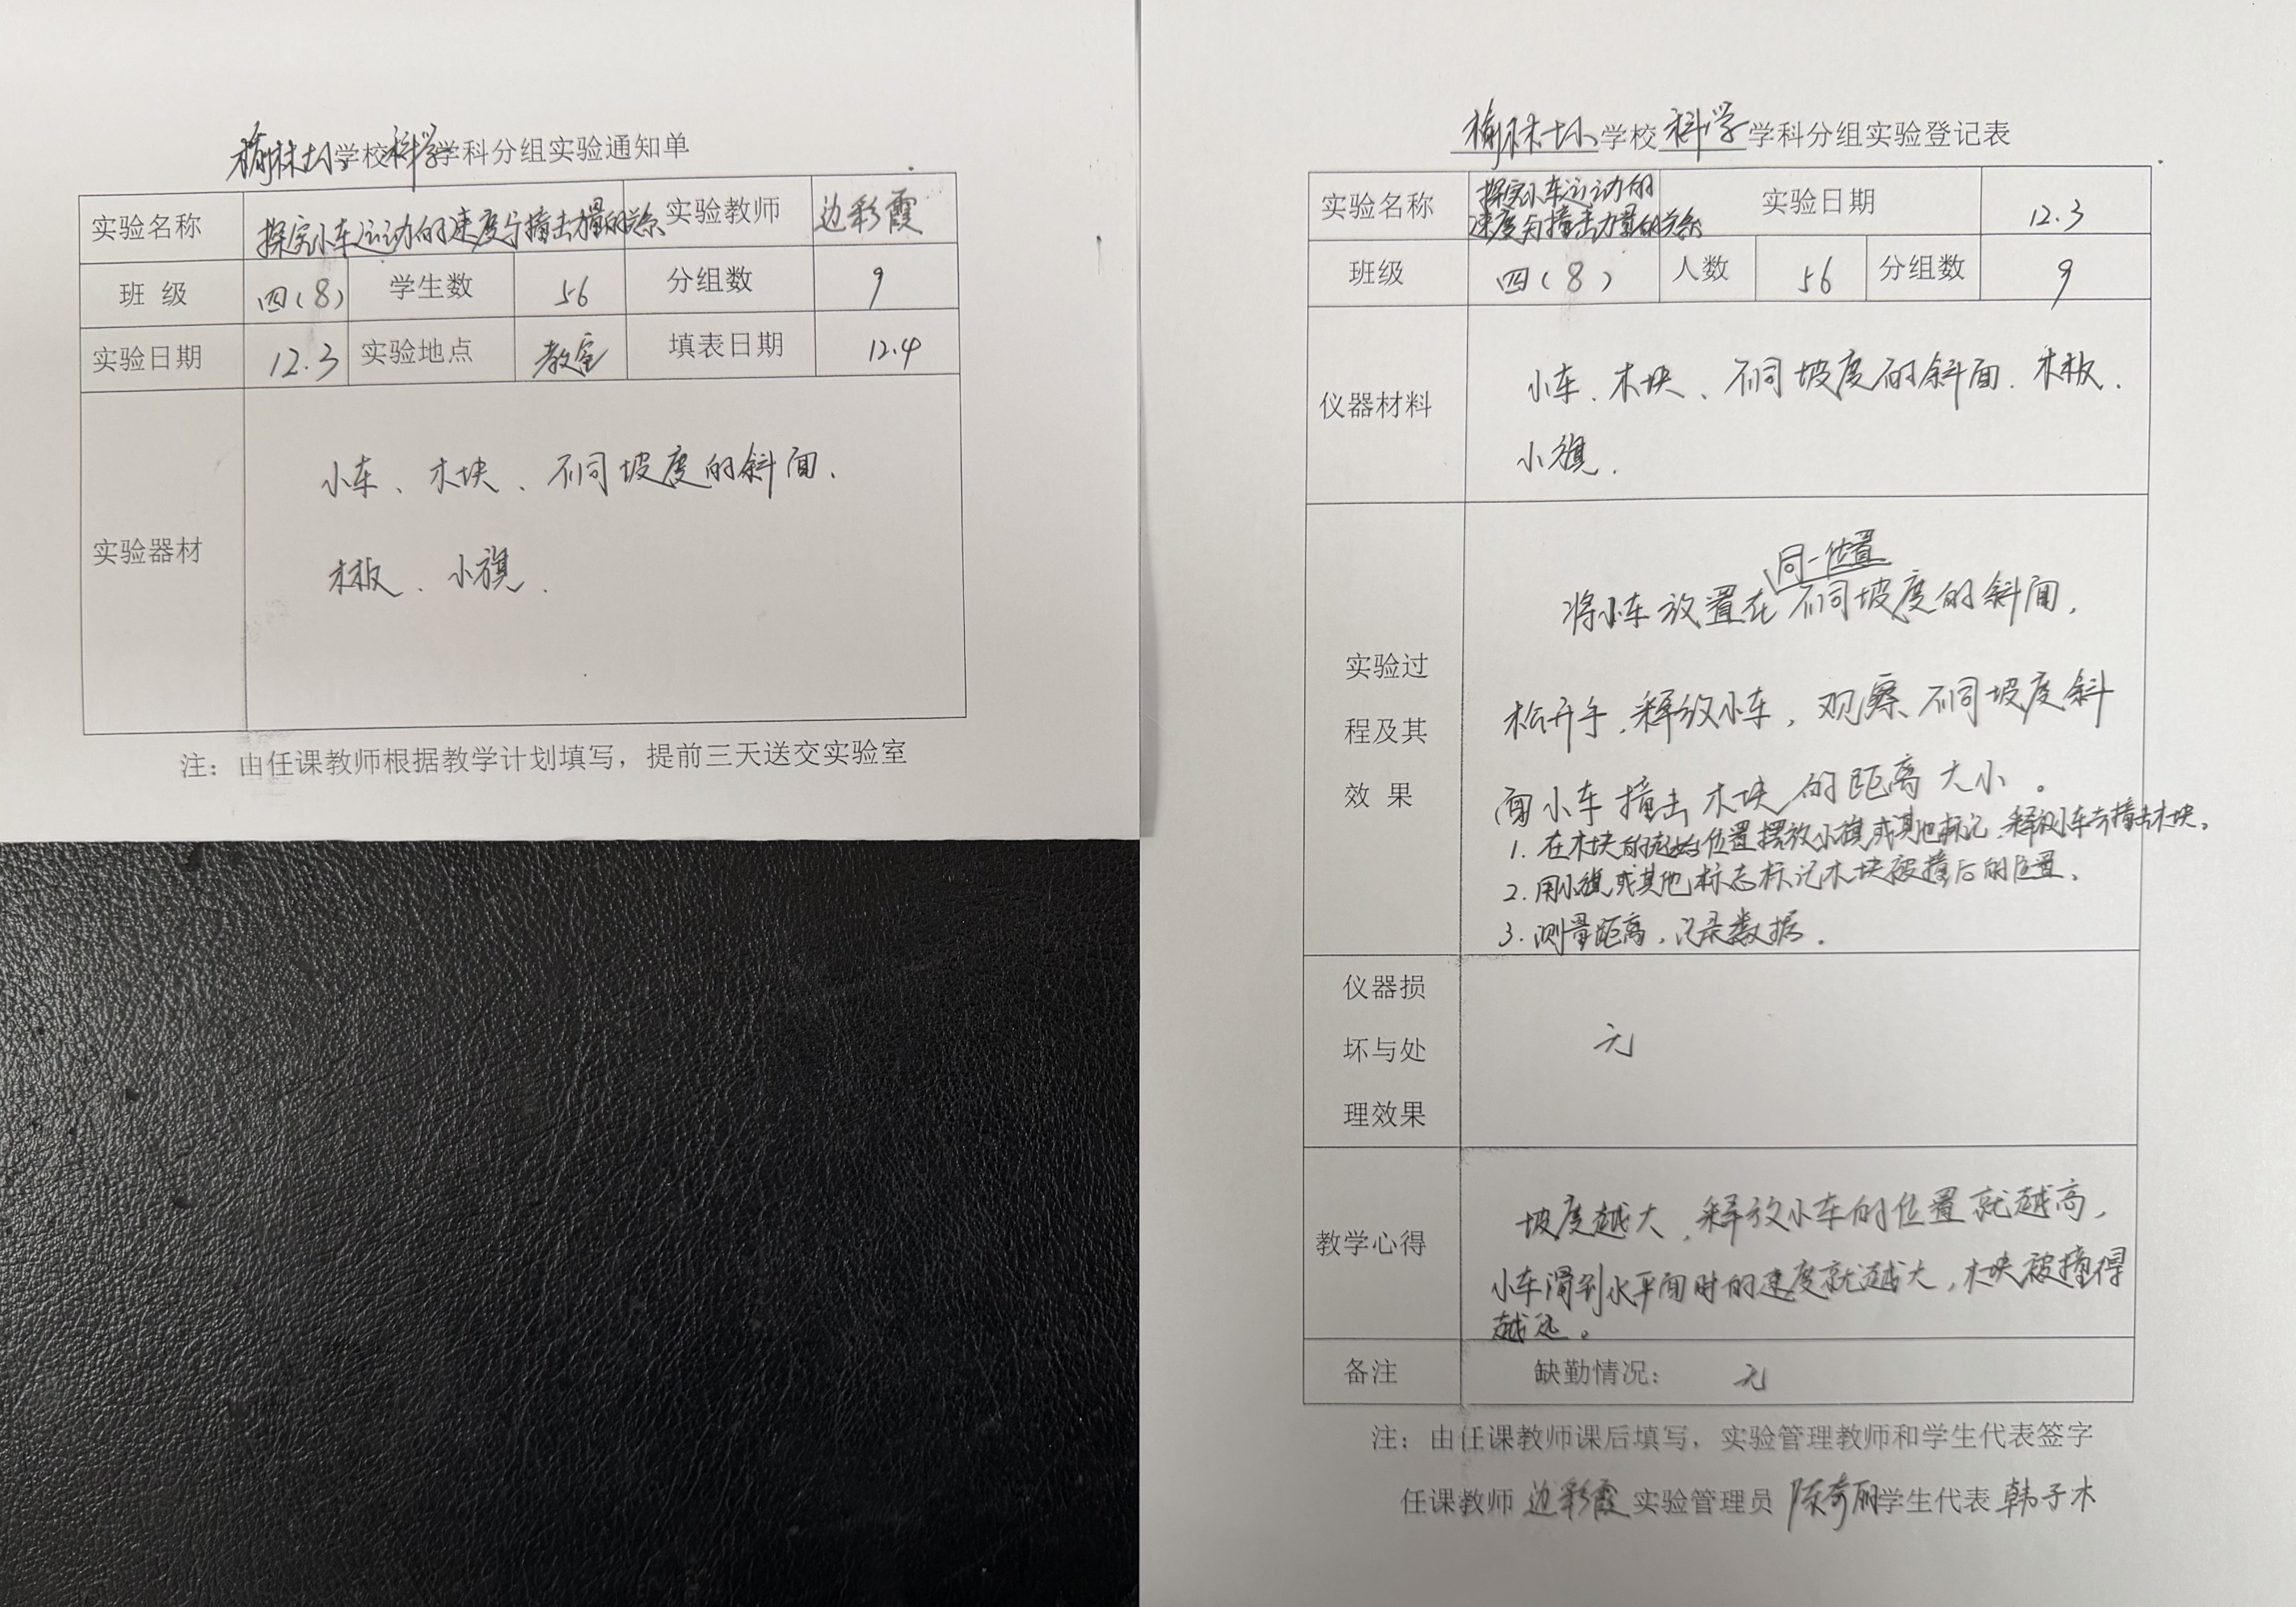 榆林十小学校科学学科分组实验通知单
实验名称 探究小车运动的速度与撞击力量的关系 实验教师 边彩霞
班 级 四(8) 学生数 56 分组数 9
实验日期 12.3 实验地点 教室 填表日期 12.4
实验器材
小车、木块、不同坡度的斜面、
木板、小旗.
注：由任课教师根据教学计划填写，提前三天送交实验室
榆林十小学校科学学科分组实验登记表
实验名称 探究小车运动的
速度与撞击力量的关系 实验日期 12.3
班级 四(8) 人数 56 分组数 9
仪器材料
小车、木块、不同坡度的斜面、木板、
小旗.
实验过
程及其
效 果
同一位置
将小车放置在不同坡度的斜面,
松开手,释放小车,观察不同坡度斜
面小车撞击木块的距离大小。
1.在木块的起始位置摆放小旗或其他标记,释放小车去撞击木块。
2.用小旗或其他标志标记木块被撞后的位置。
3.测量距离,记录数据。
仪器损
坏与处
理效果
无
教学心得
坡度越大,释放小车的位置就越高,
小车滑到水平面时的速度就越大,木块被撞得
越远。
备注 缺勤情况： 无
注：由任课教师课后填写，实验管理教师和学生代表签字
任课教师 边彩霞 实验管理员 陈奇丽 学生代表 韩子木